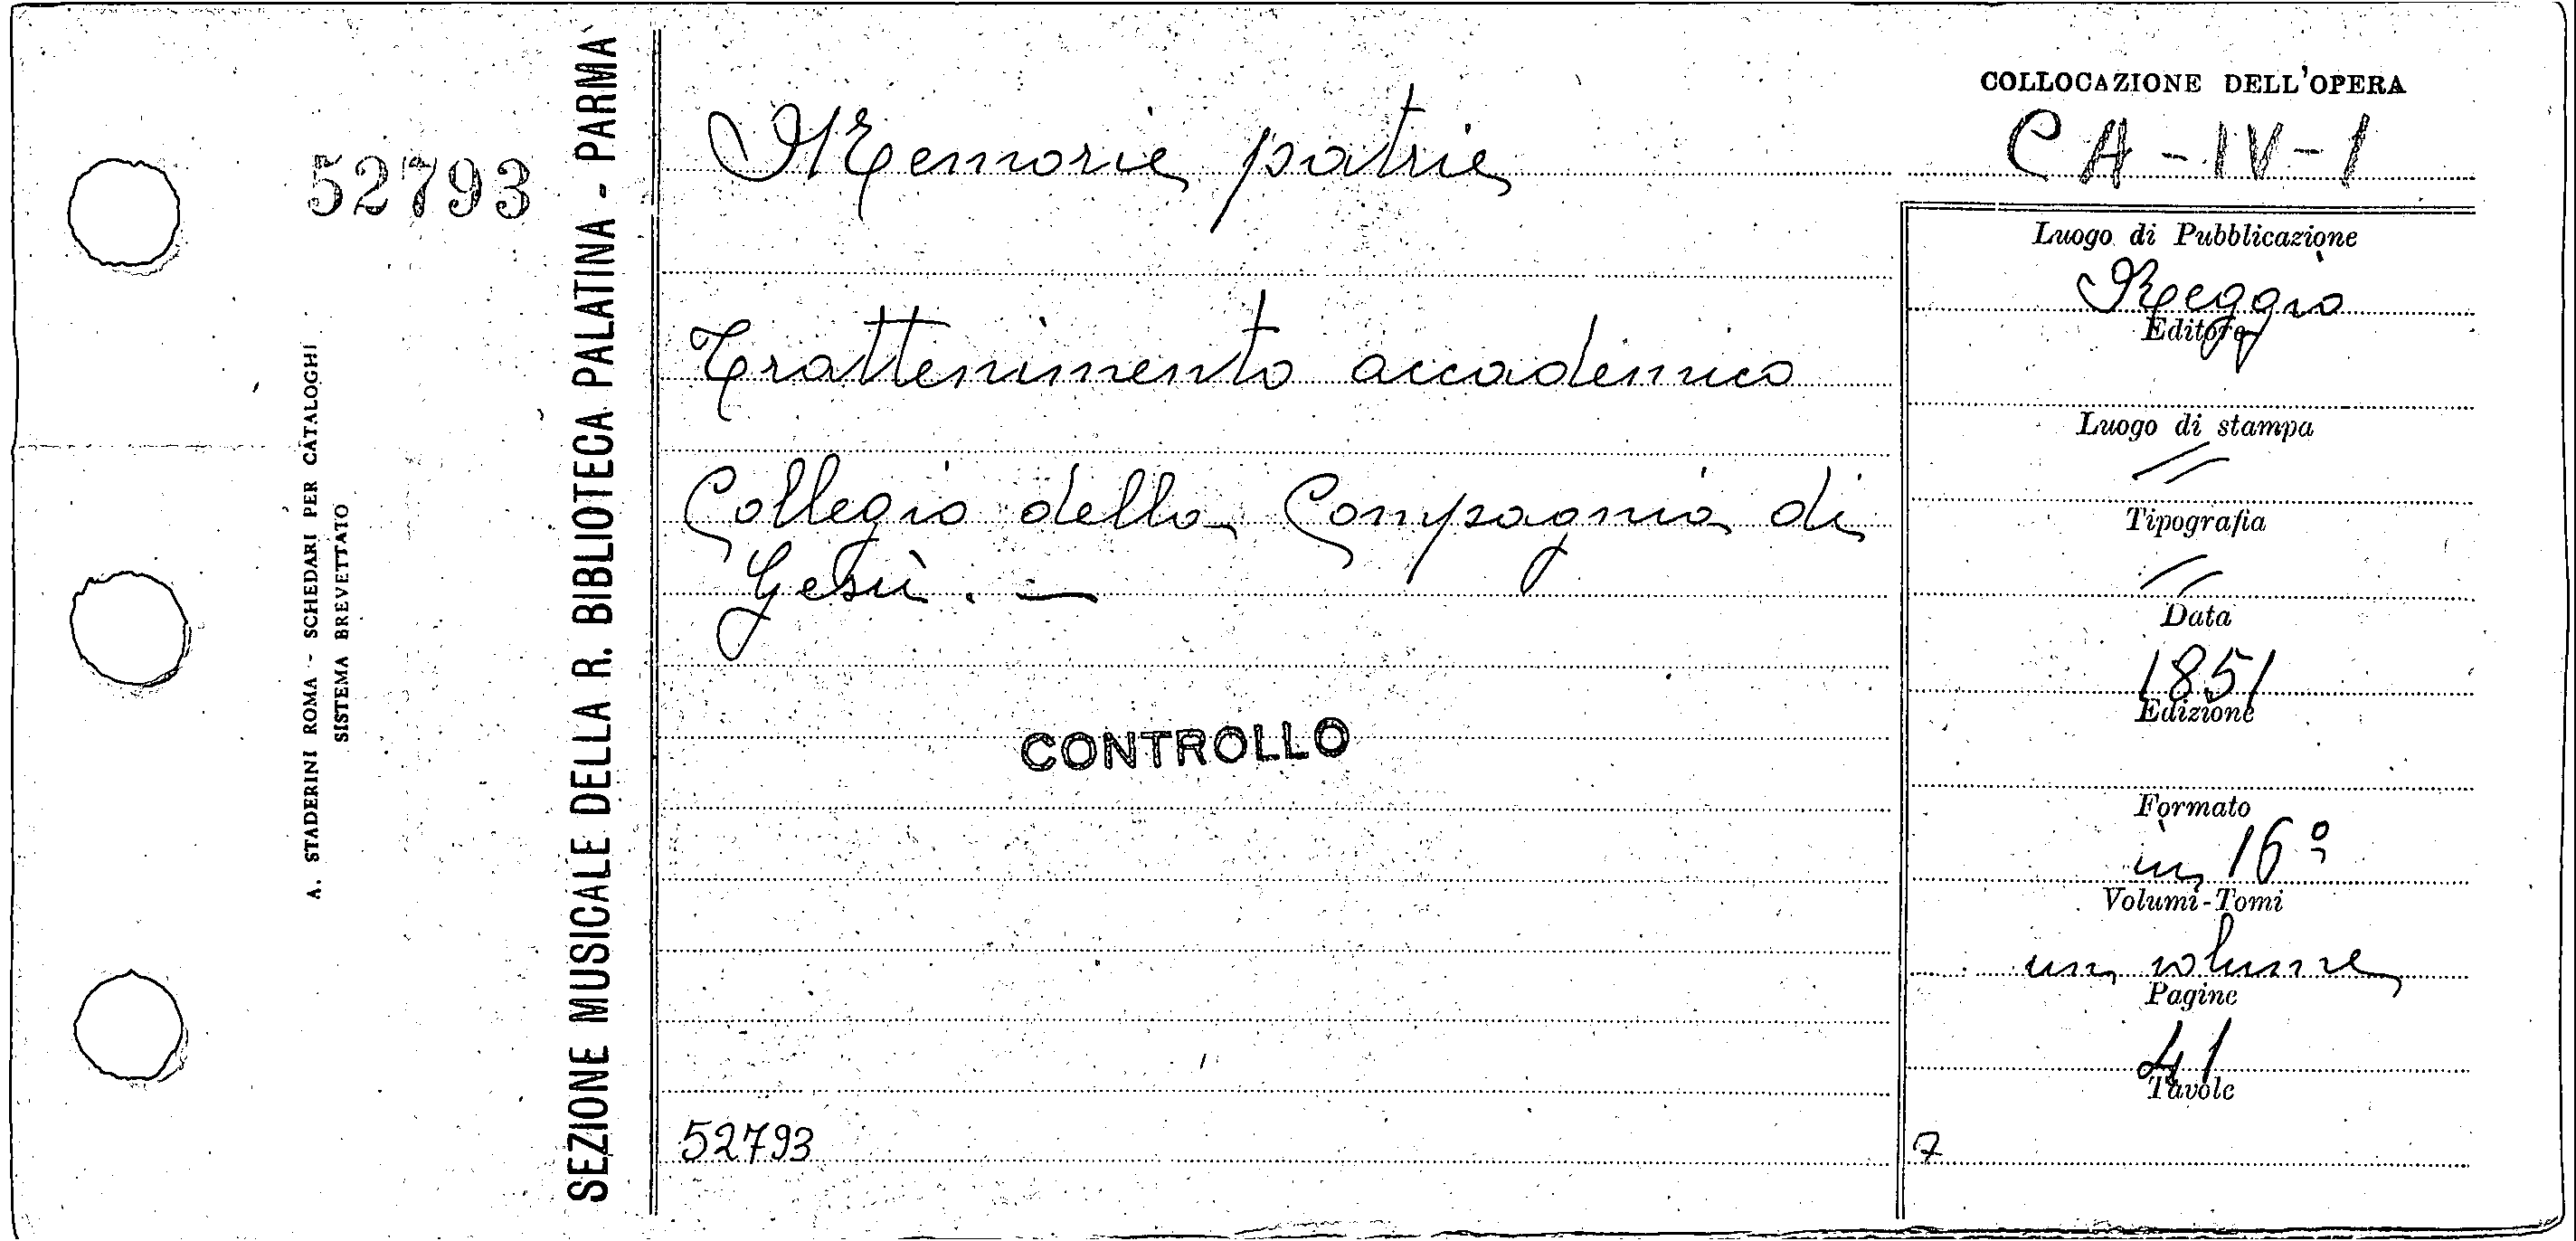 52793
A. STADERINI ROMA - SCHEDARI PER CATALOGHI
SISTEMA BREVETTATO
SEZIONE MUSICALE DELLA R. BIBLIOTECA PALATINA - PARMA
Memorie patrie
Trattenimento accademico
Collegio della Compagnia di
Gesù. —
CONTROLLO
52793
COLLOCAZIONE DELL'OPERA
CA-IV-1
Luogo di Pubblicazione
Reggio
Editore
Luogo di stampa
//
Tipografia
//
Data
1851
Edizione
Formato
in 16º
Volumi-Tomi
un volume
Pagine
41
Tavole
7